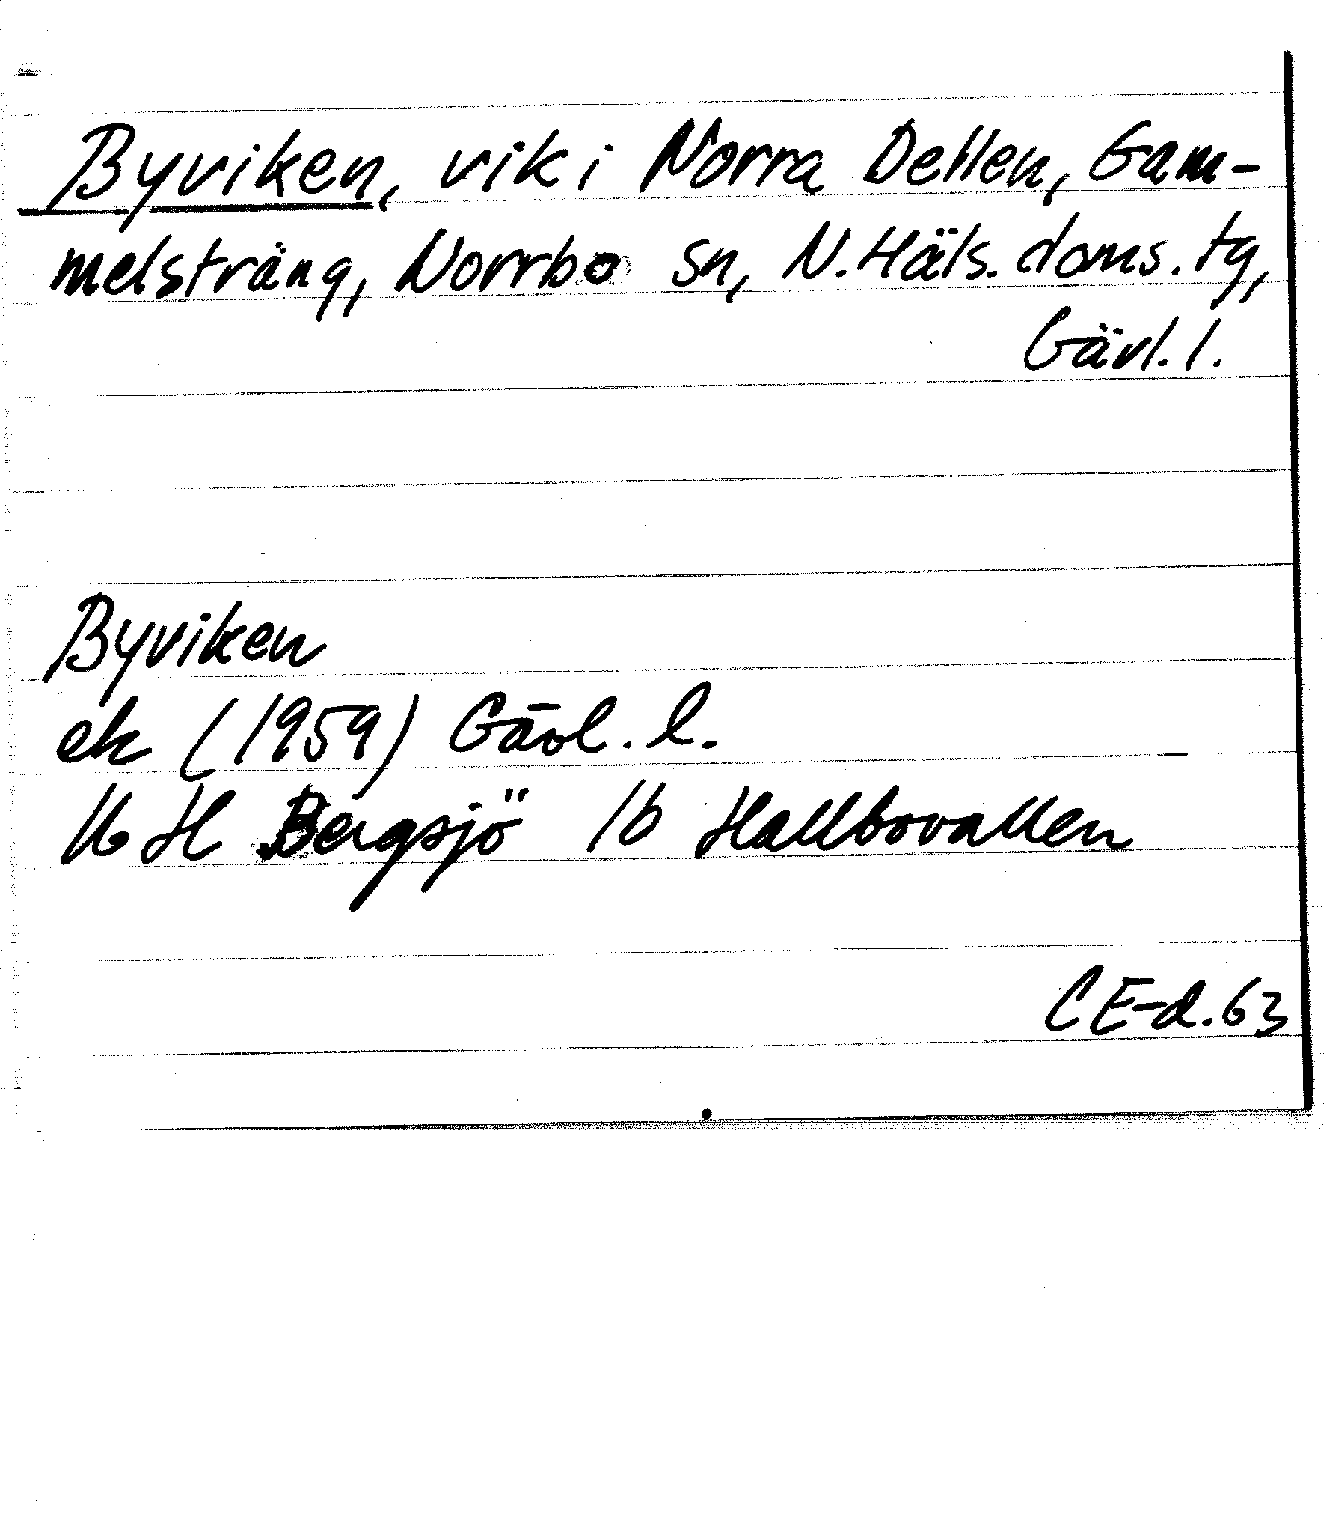 Byviken, vik i Norra Dellen, Gam-
melsträng, Norrbo sn, N.Häls.doms.tg,
Gävl.l.
Byviken
ek (1959) Gävl.l.
16 H Bergsjö 1b Hallbovallen
CE-d.63